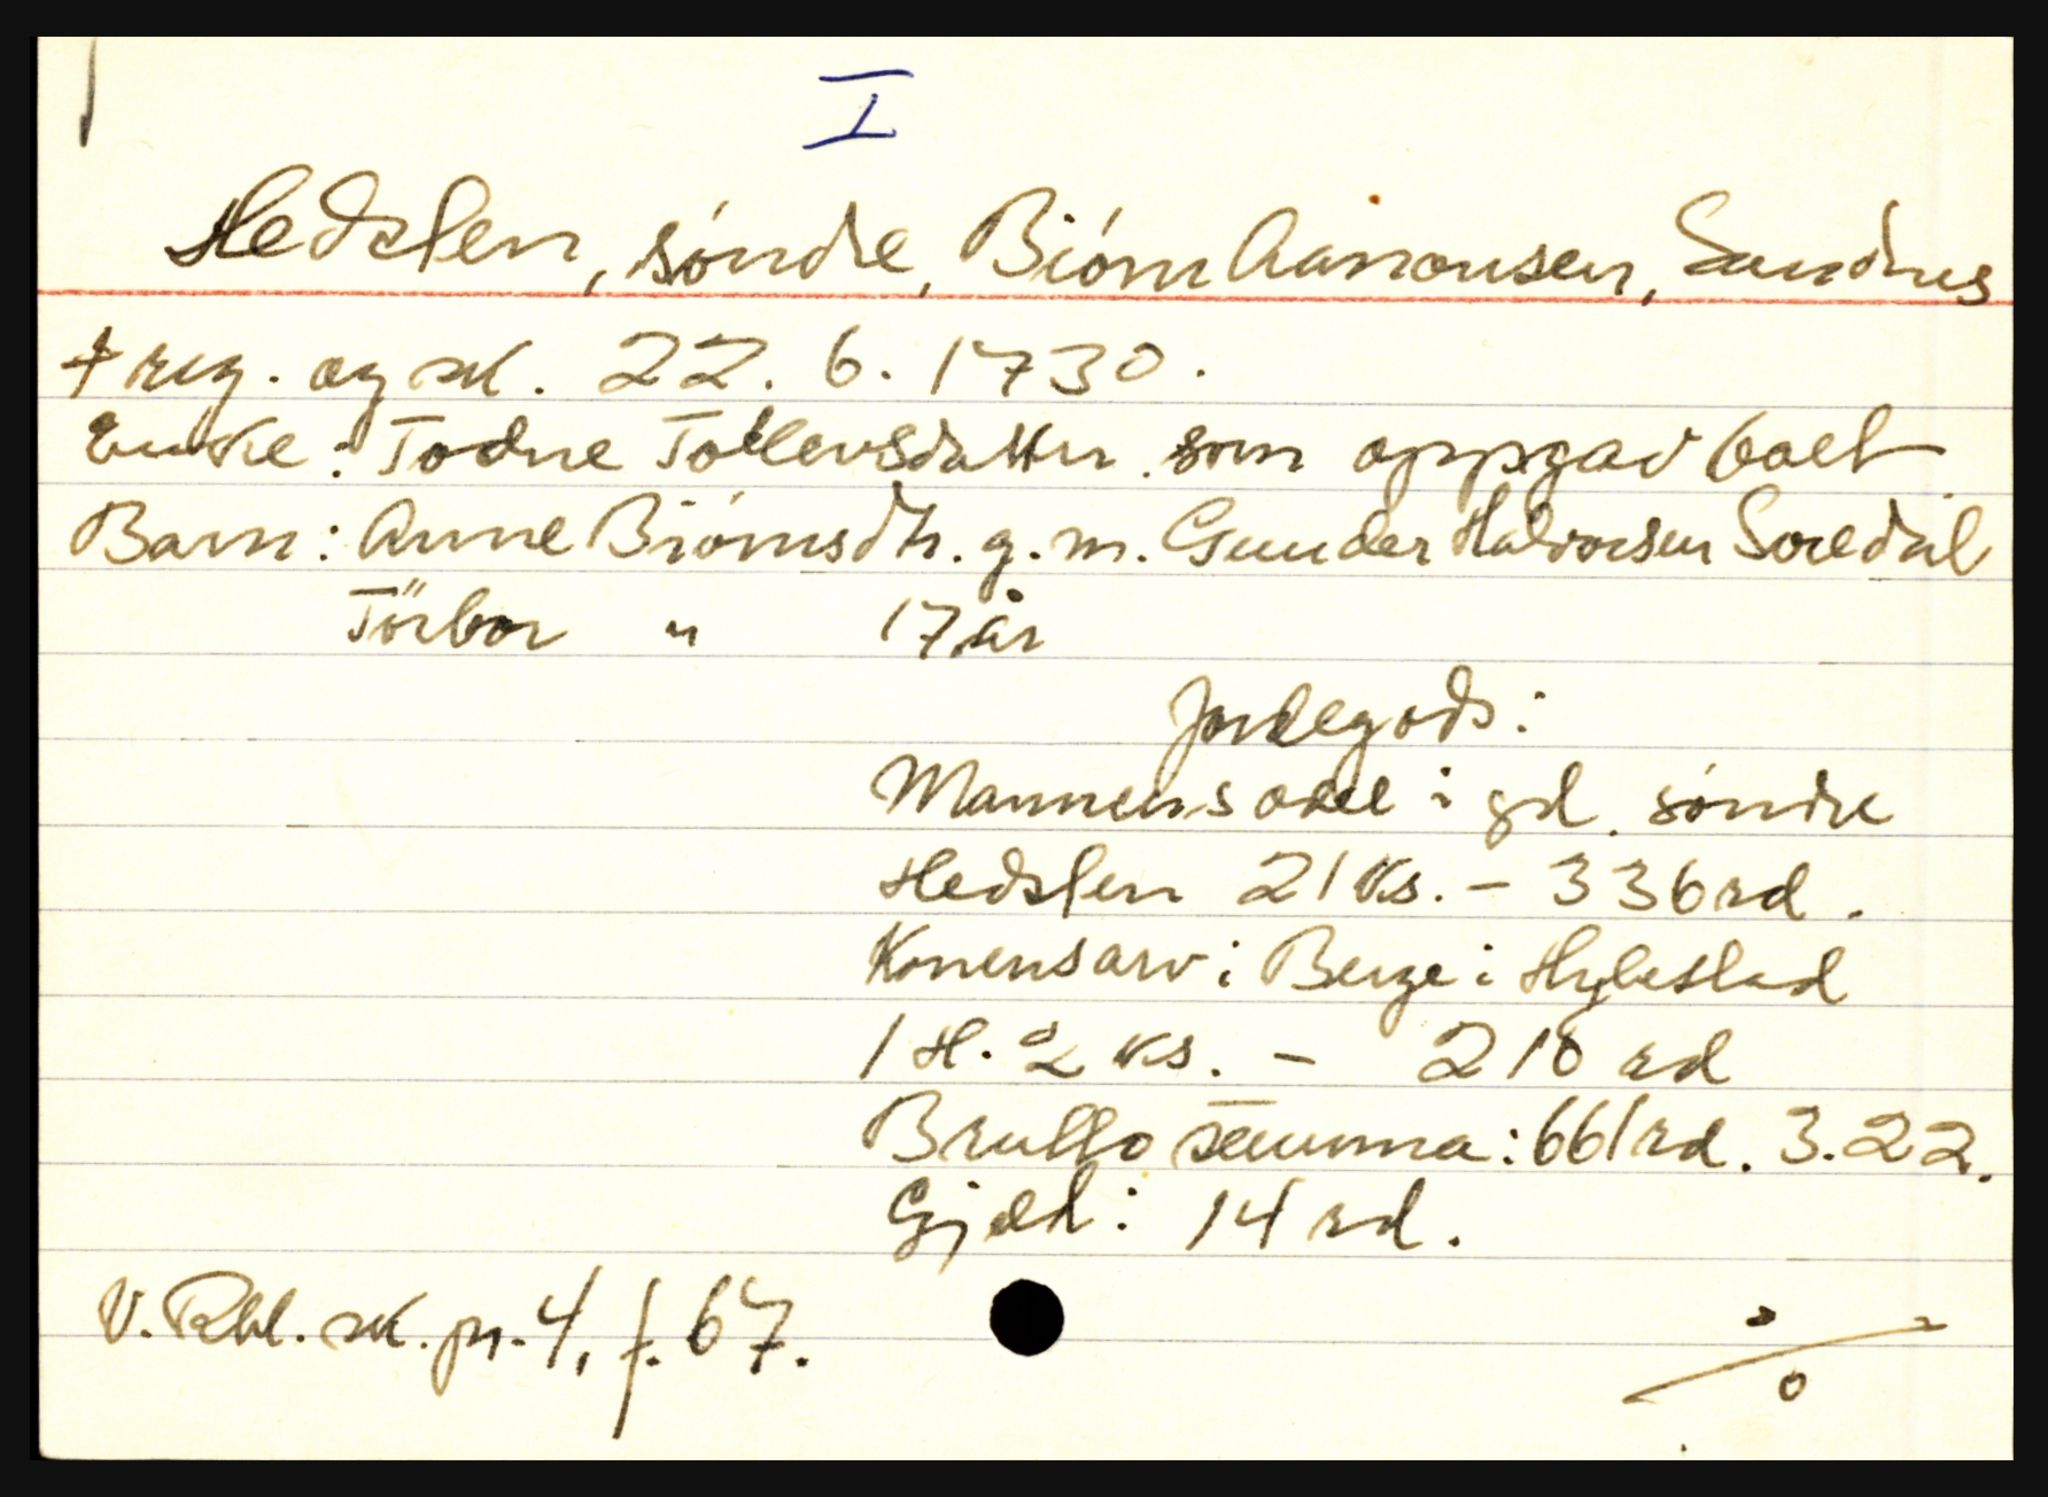 I
Hedslen, søndre, Biørn Aanonsen, Sandnes
† reg. og sk. 22. 6. 1730.
Enke: Todne Tollevsdatter som oppgav boet
Barn: Anne Biørnsdtr. g. m. Gunder Halvorsen
Törbor " 17 år
Jordegods:
Mannens odel i gd. søndre
Hedslen 21 ks. - 336 rd.
Konens arv i Berge i Hylestad
1 H. 2 ks. - 218 rd
Brutto summa: 661 rd. 3. 22.
Gjeld: 14 rd.
V. Rbl. sk. pr. 4, f. 67.